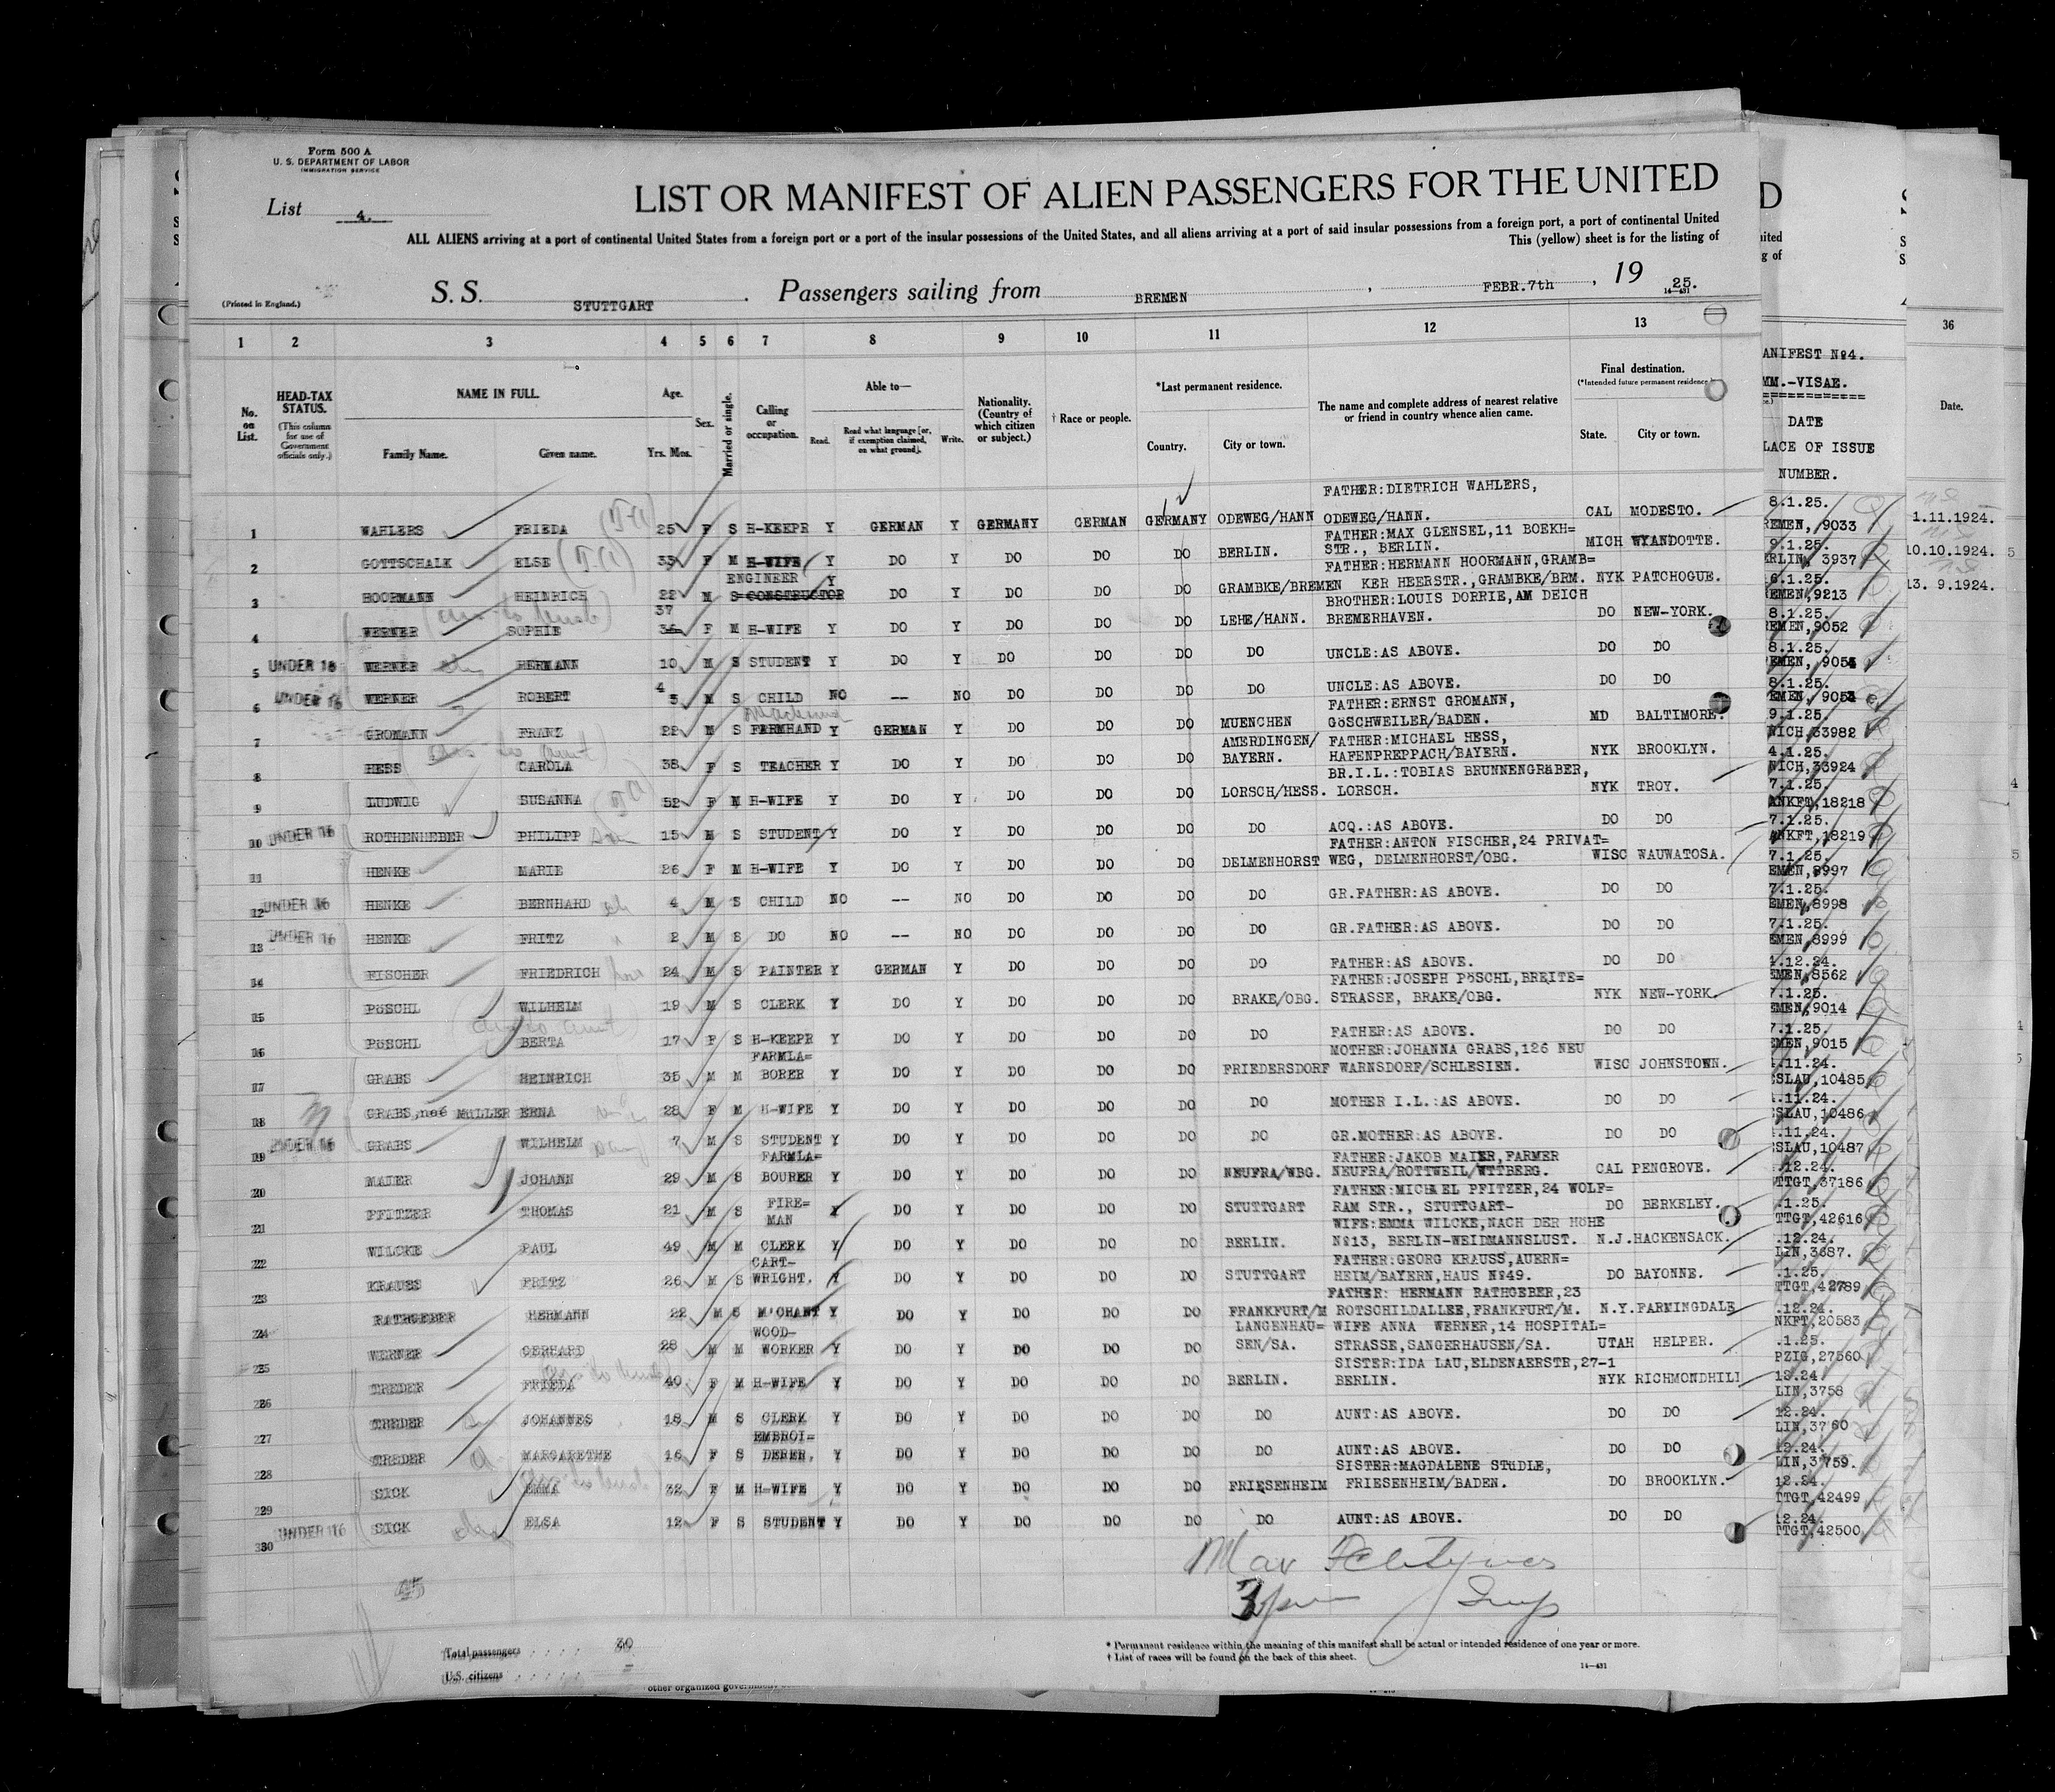 Form 500 A
U. S. DEPARTMENT OF LABOR
IMMIGRATION SERVICE
List 4.
LIST OR MANIFEST OF ALIEN PASSENGERS FOR THE UNITED
ALL ALIENS arriving at a port of continental United States from a foreign port or a port of the insular possessions of the United States, and all aliens arriving at a port of said insular possessions from a foreign port, a port of continental United
This (yellow) sheet is for the listing of
(Printed in England.)
S. S. STUTTGART . Passengers sailing from BREMEN , FEBR.7th , 19 25.
14-431
1 2 3 4 5 6 7 8 9 10 11 12 13 36
No. on List.
HEAD-TAX STATUS.
(This column for use of Government officials only.)
NAME IN FULL.
Family Name. Given name.
Age.
Yrs. Mos.
Sex.
Married or single.
Calling or occupation.
Able to—
Read. Read what language [or, if exemption claimed, on what ground]. Write.
Nationality. (Country of which citizen or subject.)
† Race or people.
*Last permanent residence.
Country. City or town.
The name and complete address of nearest relative or friend in country whence alien came.
Final destination.
(*Intended future permanent residence.)
State. City or town.
ANIFEST No4.
MM.-VISAE.
DATE
LACE OF ISSUE
NUMBER.
Date.
FATHER:DIETRICH WAHLERS, 8.1.25.
1 WAHLERS FRIEDA 25 F S H-KEEPR Y GERMAN Y GERMANY GERMAN GERMANY ODEWEG/HANN ODEWEG/HANN. CAL MODESTO. REMEN, 9033 1.11.1924.
FATHER:MAX GLENSEL,11 BOEKH= 9.1.25.
2 GOTTSCHALK ELSE 33 F M H-WIFE Y DO Y DO DO DO BERLIN. STR., BERLIN. MICH WYANDOTTE. ERLIN, 3937 10.10.1924.
ENGINEER FATHER:HERMANN HOORMANN,GRAMB= 6.1.25.
3 HOORMANN HEINRICH 22 M S CONSTRUCTOR Y DO Y DO DO DO GRAMBKE/BREMEN KER HEERSTR.,GRAMBKE/BRM. NYK PATCHOGUE. REMEN,9213 13. 9.1924.
37 BROTHER:LOUIS DORRIE,AM DEICH 8.1.25.
4 WERNER SOPHIE 36 F M H-WIFE Y DO Y DO DO DO LEHE/HANN. BREMERHAVEN. DO NEW-YORK. REMEN,9052
5 UNDER 16 WERNER HERMANN 10 M S STUDENT Y DO Y DO DO DO DO UNCLE:AS ABOVE. DO DO 8.1.25.
6 UNDER 16 WERNER ROBERT 4 5 M S CHILD NO -- NO DO DO DO DO UNCLE:AS ABOVE. DO DO 8.1.25.
FATHER:ERNST GROMANN,
7 GROMANN FRANZ 22 M S FARMHAND Y GERMAN Y DO DO DO MUENCHEN GöSCHWEILER/BADEN. MD BALTIMORE. 9.1.25. NICH,33982
AMERDINGEN/ FATHER:MICHAEL HESS,
8 HESS CAROLA 38 F S TEACHER Y DO Y DO DO DO BAYERN. HAFENPREPPACH/BAYERN. NYK BROOKLYN. 4.1.25. NICH,33924
BR.I.L.:TOBIAS BRUNNENGRäBER,
9 LUDWIG SUSANNA 52 F M H-WIFE Y DO Y DO DO DO LORSCH/HESS. LORSCH. NYK TROY. 7.1.25. ANKFT,18218
10 UNDER 16 ROTHENHEBER PHILIPP 15 M S STUDENT Y DO Y DO DO DO DO ACQ.:AS ABOVE. DO DO 7.1.25. ANKFT,18219
FATHER:ANTON FISCHER,24 PRIVAT=
11 HENKE MARIE 26 F M H-WIFE Y DO Y DO DO DO DELMENHORST WEG, DELMENHORST/OBG. WISC WAUWATOSA. 7.1.25. EMEN,8997
12 UNDER 16 HENKE BERNHARD 4 M S CHILD NO -- NO DO DO DO DO GR.FATHER:AS ABOVE. DO DO 7.1.25. EMEN,8998
13 UNDER 16 HENKE FRITZ 2 M S DO NO -- NO DO DO DO DO GR.FATHER:AS ABOVE. DO DO 7.1.25. EMEN,8999
14 FISCHER FRIEDRICH 24 M S PAINTER Y GERMAN Y DO DO DO DO FATHER:AS ABOVE. DO DO .12.24. EMEN,8562
FATHER:JOSEPH PöSCHL,BREITE=
15 PöSCHL WILHELM 19 M S CLERK Y DO Y DO DO DO BRAKE/OBG. STRASSE, BRAKE/OBG. NYK NEW-YORK. 7.1.25. EMEN,9014
16 PöSCHL BERTA 17 F S H-KEEPR Y DO Y DO DO DO DO FATHER:AS ABOVE. DO DO 7.1.25. EMEN,9015
FARMLA= MOTHER:JOHANNA GRABS,126 NEU
17 GRABS HEINRICH 35 M M BORER Y DO Y DO DO DO FRIEDERSDORF WARNSDORF/SCHLESIEN. WISC JOHNSTOWN. .11.24. SLAU,10485
18 GRABS,neé MüLLER ERNA 28 F M H-WIFE Y DO Y DO DO DO DO MOTHER I.L.:AS ABOVE. DO DO .11.24. SLAU,10486
19 UNDER 16 GRABS WILHELM 7 M S STUDENT Y DO Y DO DO DO DO GR.MOTHER:AS ABOVE. DO DO .11.24. SLAU,10487
FARMLA= FATHER:JAKOB MAIER,FARMER
20 MAIER JOHANN 29 M S BOURER Y DO Y DO DO DO NEUFRA/WBG. NEUFRA/ROTTWEIL/WTTBERG. CAL PENGROVE. .12.24. TTGT,37186
FIRE= FATHER:MICHAEL PFITZER,24 WOLF=
21 PFITZER THOMAS 21 M S MAN Y DO Y DO DO DO STUTTGART RAM STR., STUTTGART- DO BERKELEY. .1.25. TTGT,42616
WIFE:EMMA WILCKE,NACH DER HöHE
22 WILCKE PAUL 49 M M CLERK Y DO Y DO DO DO BERLIN. No13, BERLIN-WEIDMANNSLUST. N.J.HACKENSACK. .12.24. LIN,3687.
CART- FATHER:GEORG KRAUSS,AUERN=
23 KRAUSS FRITZ 26 M S WRIGHT. Y DO Y DO DO DO STUTTGART HEIM/BAYERN,HAUS No49. DO BAYONNE. .1.25. TTGT,42789
FATHER: HERMANN RATHGEBER,23
24 RATHGEBER HERMANN 22 M S M'CHANT Y DO Y DO DO DO FRANKFURT/M ROTSCHILDALLEE,FRANKFURT/M. N.Y.FARMINGDALE .12.24. NKFT,20583
WOOD- LANGENHAU= WIFE ANNA WERNER,14 HOSPITAL=
25 WERNER GERHARD 28 M M WORKER Y DO Y DO DO DO SEN/SA. STRASSE,SANGERHAUSEN/SA. UTAH HELPER. .1.25. PZIG,27560
SISTER:IDA LAU,ELDENAERSTR,27-1
26 TREDER FRIEDA 40 F M H-WIFE Y DO Y DO DO DO BERLIN. BERLIN. NYK RICHMONDHILL LIN,3758
27 TREDER JOHANNES 18 M S CLERK Y DO Y DO DO DO DO AUNT:AS ABOVE. DO DO 12.24. LIN,3760
EMBROI=
28 TREDER MARGARETHE 16 F S DERER. Y DO Y DO DO DO DO AUNT:AS ABOVE. DO DO 12.24. LIN,3759.
SISTER:MAGDALENE STüDLE,
29 SICK EMMA 32 F M H-WIFE Y DO Y DO DO DO FRIESENHEIM FRIESENHEIM/BADEN. DO BROOKLYN. 12.24. TTGT,42499
30 UNDER 16 SICK ELSA 12 F S STUDENT Y DO Y DO DO DO DO AUNT:AS ABOVE. DO DO 12.24. TTGT,42500
Max
45
Total passengers . . . . 30
U.S. citizens . . . . . –
* Permanent residence within the meaning of this manifest shall be actual or intended residence of one year or more.
† List of races will be found on the back of this sheet.
14-431